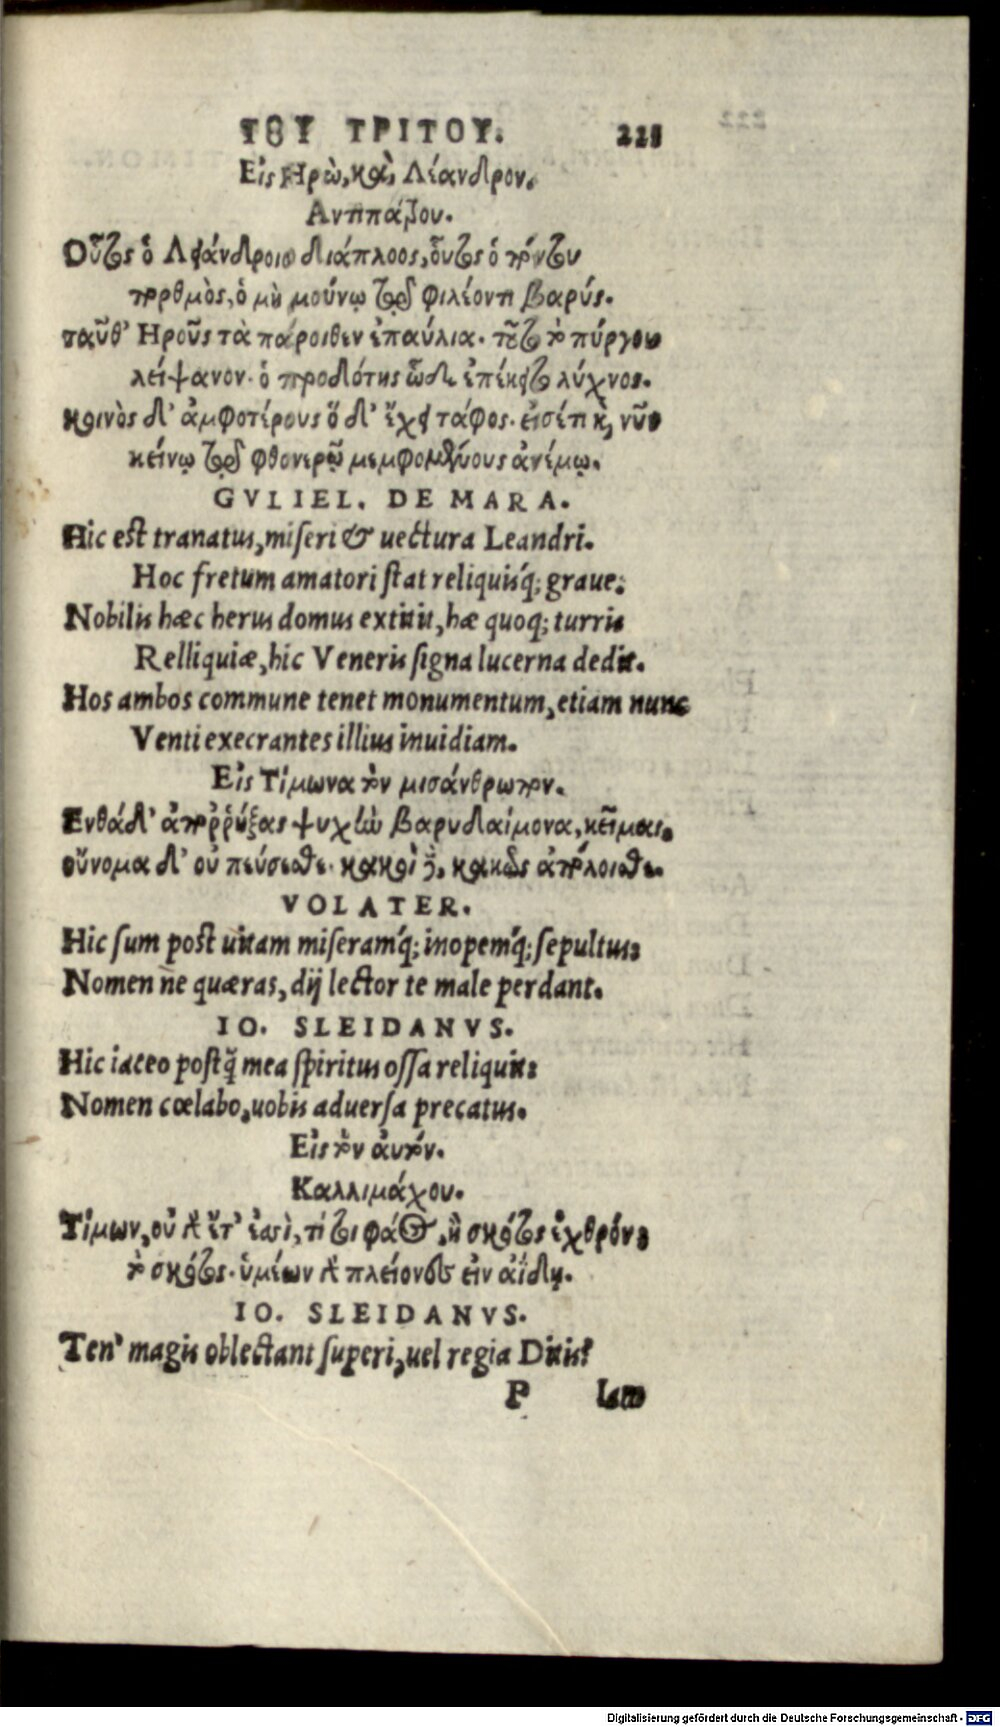 ΤΟΥ ΤΡΙΤΟΥ. 225
Εἰς Ηρὼ, καὶ Λέανδρον.
Αντιπάτρου.
Οὗτος ὁ Λειάνδροιο διάπλοος, οὗτος ὁ πόντου
πορθμὸς, ὁ μὴ μούνῳ τῷ φιλέοντι βαρύς.
ταῦθ' Ηροῦς τὰ πάροιθεν ἐπαύλια. τοῦτο τὸ πύργου
λείψανον. ὁ προδότης ὧδ' ἐπέκειτο λύχνος.
κοινὸς δ' ἀμφοτέρους ὅδ' ἔχει τάφος. εἰσέτι καὶ νῦν
κείνῳ τῷ φθονερῷ μεμφομένους ἀνέμῳ.
GVLIEL. DE MARA.
Hic est tranatus, miseri & uectura Leandri.
Hoc fretum amatori stat reliquisq; graue:
Nobilis hæc herus domus extitit, hæ quoq; turris
Relliquiæ, hic Veneris signa lucerna dedit.
Hos ambos commune tenet monumentum, etiam nunc
Venti execrantes illius inuidiam.
Εἰς Τίμωνα τὸν μισάνθρωπον.
Ενθάδ' ἀποῤῥήξας ψυχὴν βαρυδαίμονα, κεῖμαι.
οὔνομα δ' οὐ πεύσεσθε. κακοὶ δὲ, κακῶς ἀπόλοισθε.
VOLATER.
Hic sum post uitam miseramq́; inopemq́; sepultus:
Nomen ne quæras, dij lector te male perdant.
IO. SLEIDANVS.
Hic iaceo postq̃ mea spiritus ossa reliquit:
Nomen cœlabo, uobis aduersa precatus.
Εἰς τὸν ἀυτόν.
Καλλιμάχου.
Τίμων, οὐ γὰρ ἔτ' ἐσσὶ, τί τοι φάος, ἢ σκότος ἐχθρόν;
τὸ σκότος. ὑμέων γὰρ πλείονες εἰν ἀΐδῃ.
IO. SLEIDANVS.
Ten' magis oblectant superi, uel regia Ditis?
P Iam
Digitalisierung gefördert durch die Deutsche Forschungsgemeinschaft - DFG